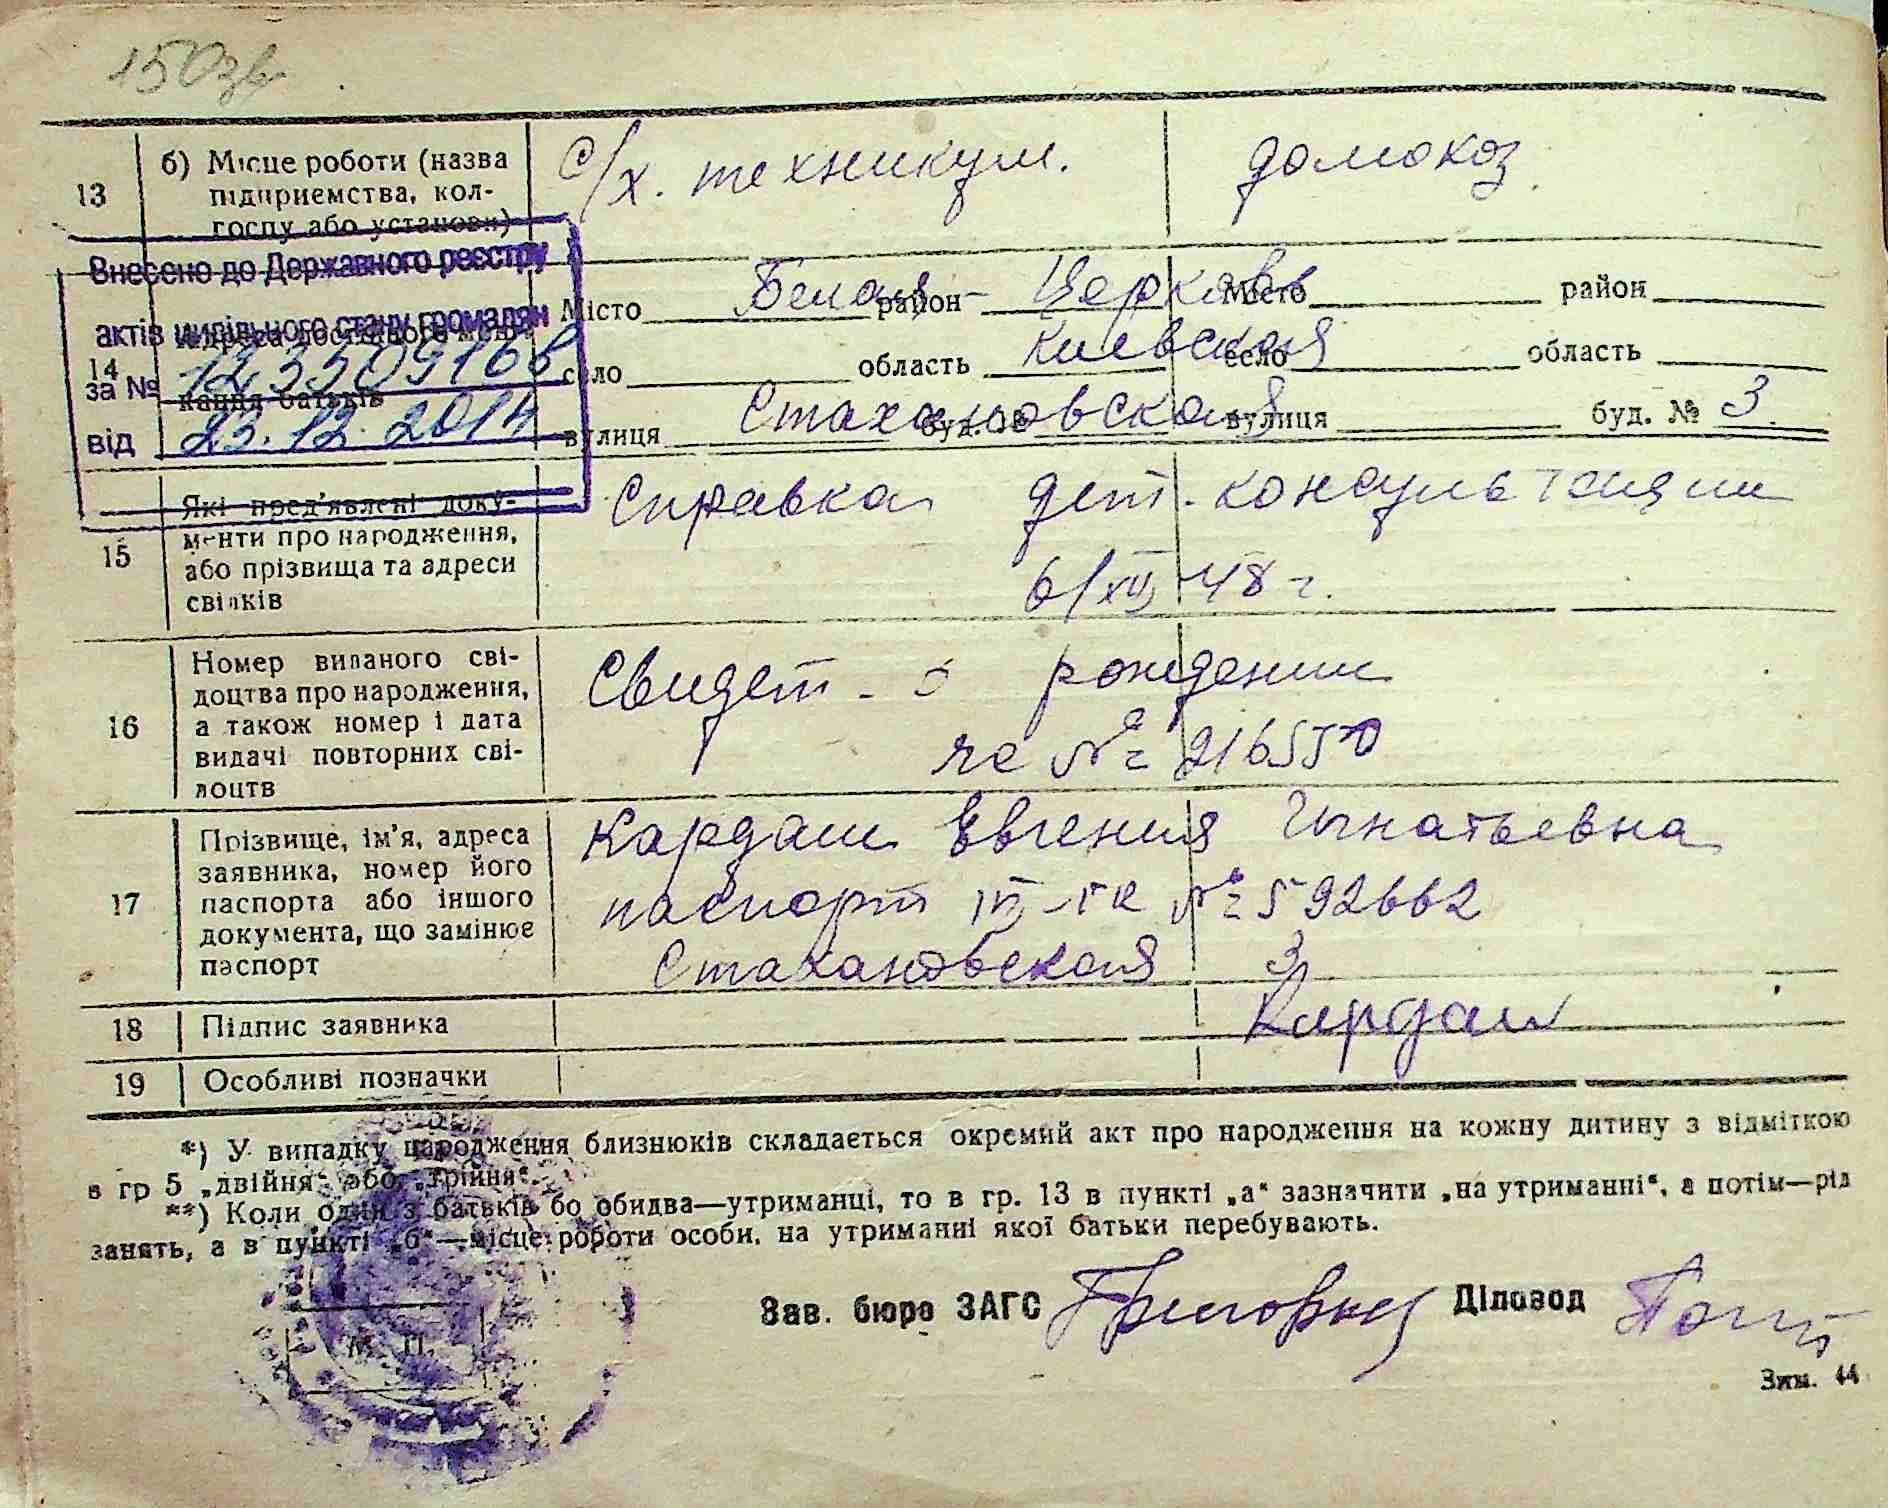 150зв
13
б) Місце роботи (назва
підприємства, кол-
госпу або установи)
с/х. техникум.
домохоз.
Внесено до Державного реєстру
актів цивільного стану громадян
за №
від 23.12.2014
14
Адреса постійного меш-
кання батьків
Місто Белая - район Церковь Місто район
село область Киевская село область
вулиця Стахановская буд. № вулиця буд. № 3
15
Які пред'явлені доку-
менти про народження,
або прізвища та адреси
свідків
Справка дет. консультации
6/XII 48 г.
16
Номер виданого сві-
доцтва про народження,
а також номер і дата
видачі повторних сві-
доцтв
Свидет - о рождении
№ 216550
17
Прізвище, ім'я, адреса
заявника, номер його
паспорта або іншого
документа, що замінює
паспорт
Кардаш Евгения Игнатьевна
паспорт № 592662
Стахановская 3
18
Підпис заявника
Кардаш
19
Особливі позначки
*) У випадку народження близнюків складається окремий акт про народження на кожну дитину з відміткою
в гр 5 „двійня“ або „трійня“.
**) Коли один з батьків бо обидва—утриманці, то в гр. 13 в пункті „а“ зазначити „на утриманні“, а потім—рід
занять, а в пункті „б“—місце роботи особи, на утриманні якої батьки перебувають.
Зав. бюро ЗАГС Діловод
М. П.
Зам. 44